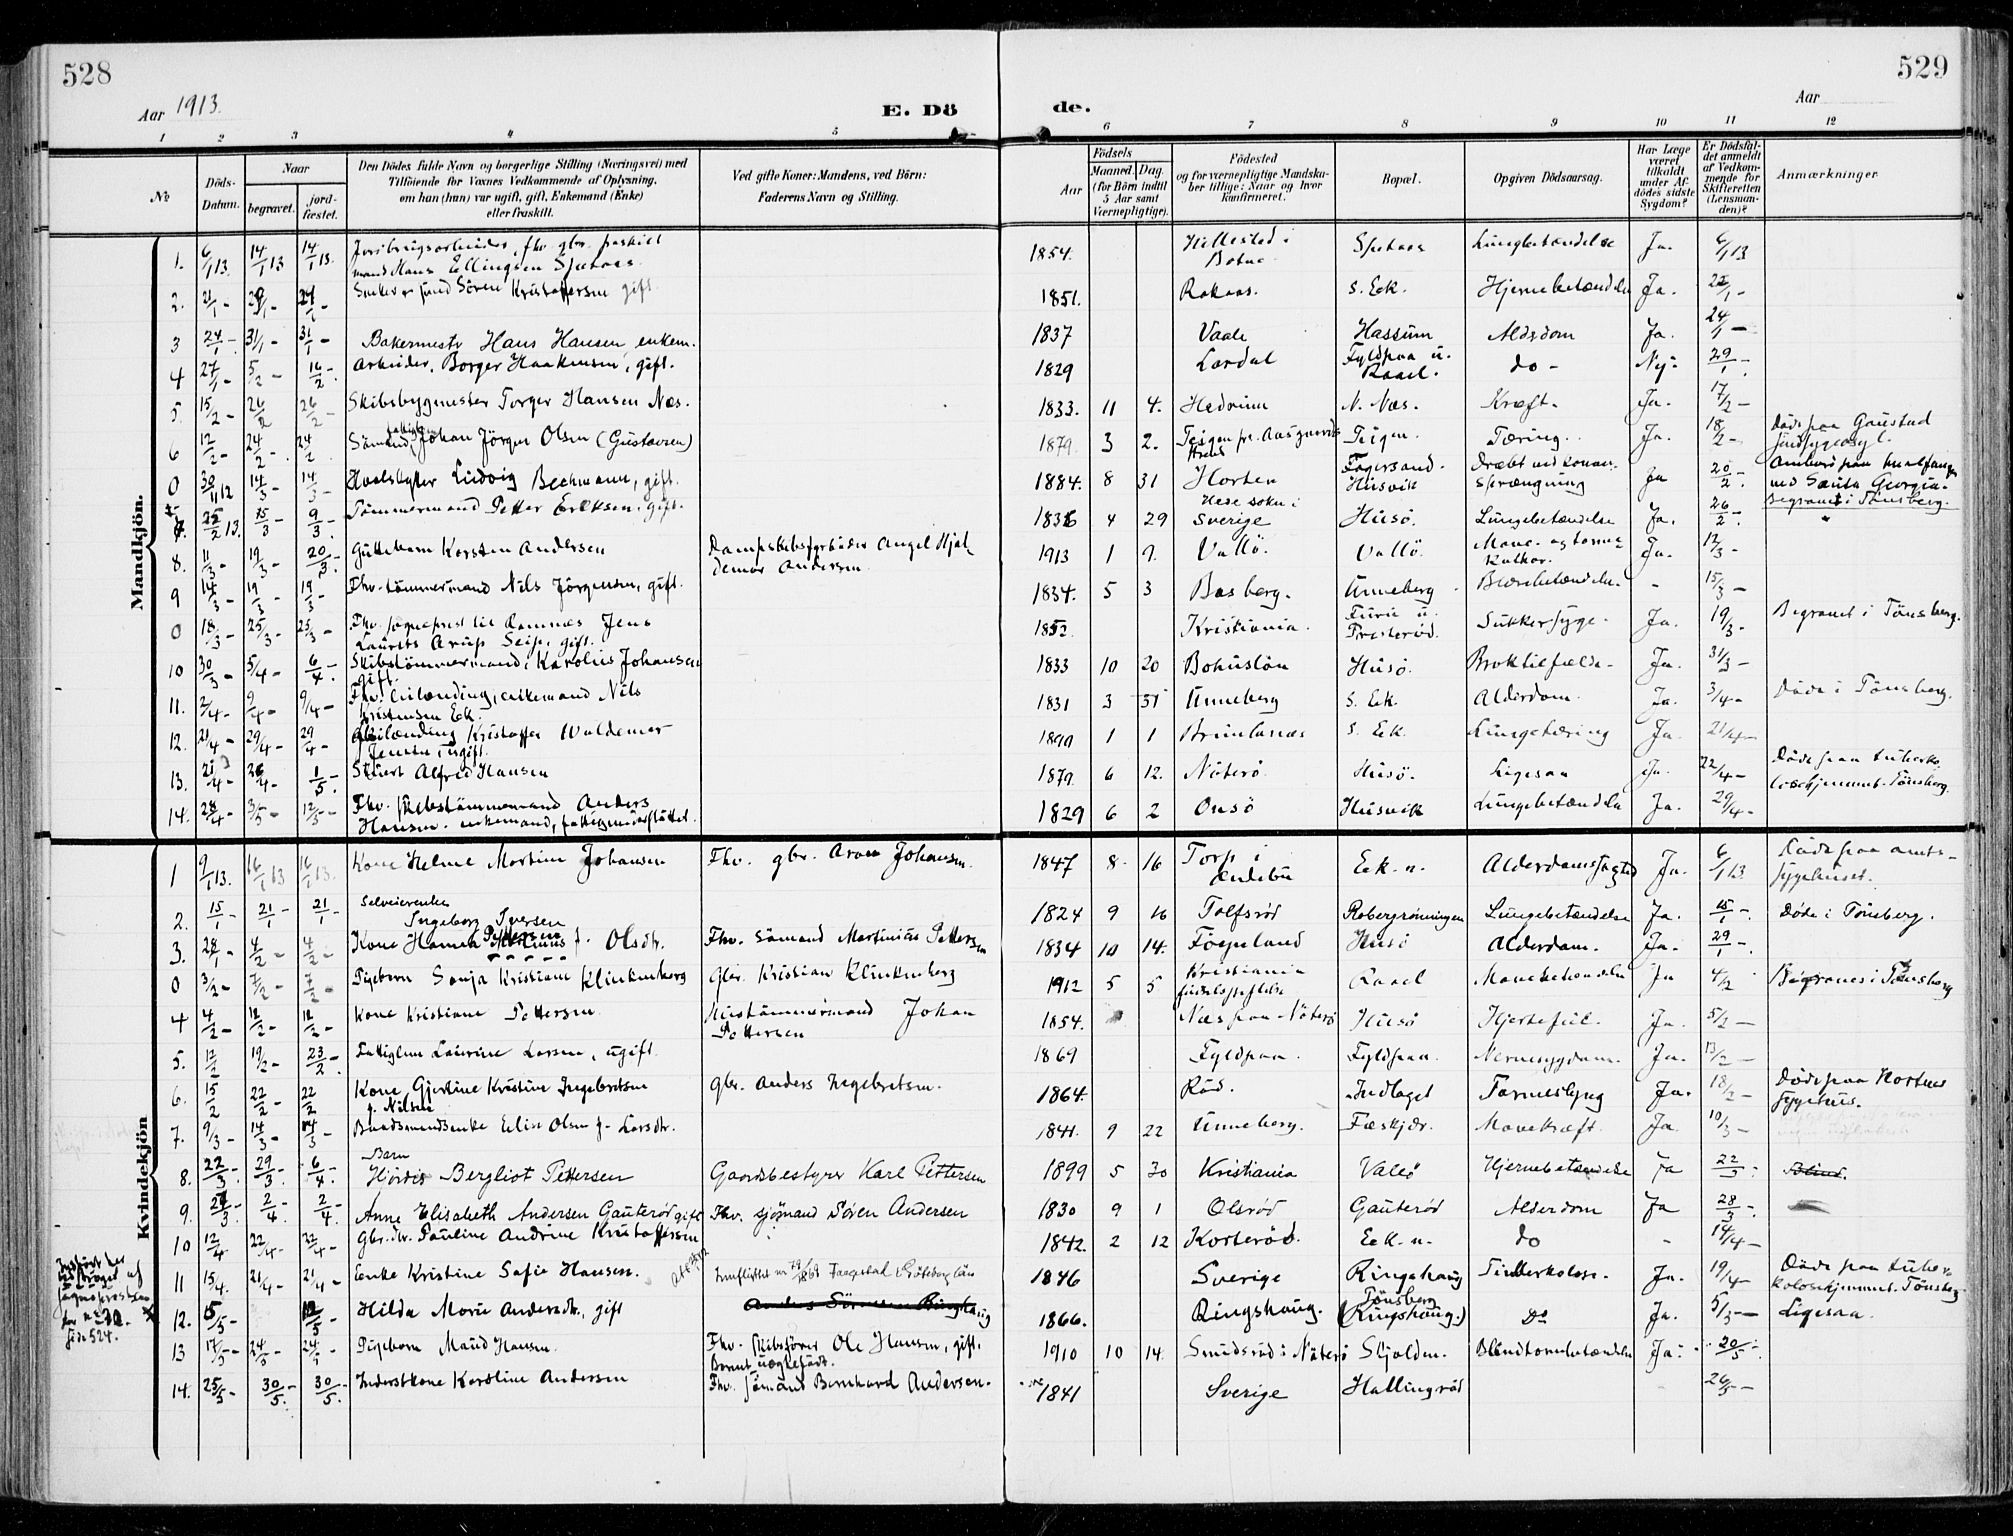 528
529
Aar 1913.
E. Dö
de.
Aar
1 2 3 4 5 6 7 8 9 10 11 12
No
Döds-Datum.
Naar
begravet.
jord-fæstet.
Den Dödes fulde Navn og borgerlige Stilling (Næringsvei) med
Tilföiende for Voxnes Vedkommende af Oplysning,
om han (hun) var ugift, gift, Enkemand (Enke)
eller fraskilt.
Ved gifte Koner: Mandens, ved Börn:
Faderens Navn og Stilling.
Födsels
Aar
Maaned. Dag.
(for Börn indtil
5 Aar samt
Værnepligtige).
Födested
og for værnepligtige Mandska-
ber tillige: Naar og hvor
konfirmeret.
Bopæl.
Opgiven Dödsaarsag.
Har Læge
været
tilkaldt
under Af-
dödes sidste
Sygdom?
Er Dödsfal-
det anmeldt
af Vedkom-
mende for
Skifteretten
(Lensman-
den)?
Anmærkninger
Mandkjön.
1. 6/1 13. 14/1 13 14/1 13. mand Hans Ellingsen Spetaas. 1854. Hillestad i Botne Spetaas Lungebetændelse Ja. 6/1 13
2. 21/1 - Sören Kristoffersen gift. 1851. Rakaas. S. Eek. Hjernebetændelse Ja. 22/1 -
3 24/1 - 31/1 - 31/1 - Bakermestr Hans Hansen, enkem. 1837 Vaale Hassum Aldsdom Ja. 24/1 -
4 27/1 - 5/2 - 16/2 - Arbeider, Borger Haakensen, gift. 1829 Lardal Fyldpaa u. Raael. do - Nej. 29/1 -
5. 15/2 - 26/2 26/2 - Skibsbygmester Torger Hansen Næs. 1833. 11 4. Hedrum N. Næs. Kræft. Ja. 17/2 -
6 12/2 - 24/2 - 24/2 Sömand, Johan Jörgen Olsen (Gustavsen) 1879. 3 2. Teigen Teigen. Tæring. Ja. 18/2 - Döde paa Gaustad sindsygeasyl.
0 30/11 12 14/3 - 14/3 - Hvalskytter Ludvig Beckmann, gift. 1884. 8 31 Horten Fagersand. Husvik Dræbt ved kanon-sprængning Ja 20/2 - ved Santa Georgia. Begravet i Tönsberg.
7. 22/2 13. 15/3 - 9/3 - Tömmermand Petter Eriksen, gift. 1836 4 29 Hede sokn i Sverige Husö. Lungebetændelse Ja. 26/2 -
8. 11/3 - 19/3 - 20/3 - Guttebarn Karsten Andersen Dampskibsfyrböder Angel Hjal demar Andersen. 1913 1 9. Vallö. Vallö. Mave- og tarmkatharr. Ja. 12/3 -
9 14/3 - 19/3 - 19/3 - Fhv. tömmermand Nils Jörgensen, gift. 1834. 5 3 Basberg. Unneberg Blærebetændelse. - 15/3 -
0 18/3 - 25/3 - 25/3 - Fhv. sogneprest til Ramnæs Jens Laurits Arup Seip, gift. 1852. Kristiania. Furu u. Presterød. Sukkersyge. Ja. 19/3 - Begravet i Tönsberg.
10 30/3 - 5/4 - 6/4 - Skibstömmermand, Karolius Johansen gift. 1833 10 20 Bohuslän Husö. Broktilfælde. Ja. 31/3 -
11. 2/4 - 9/4 - 9/4 - Fhv. Eilænding, enkemand Nils Kristensen Eek. 1831 3 31 Unneberg S. Eek. Alderdom. Ja. 3/4 - Döde i Tönsberg.
12. 21/4 - 29/4 - 29/4 - Kristoffer Waldemar Jensen, ugift. 1890 1 1 Brunlanæs S. Eek. Lungetæring Ja. 21/4 -
13. 21/4 - 30/4 - 1/5 - Stuert Alfred Hansen 1879. 6 12. Nöterö. Husö. Ligesaa Ja. 22/4 - Döde paa tuberkuloschjemmet. Tönsberg.
14. 28/4 - 3/5 - 12/5 - Fhv. skibstömmermand Anders Hansen. enkemand, fattigunderstöttet. 1829 6 2 Onsö Husvik Lungebetændelse Ja. 29/4 -
Kvindekjön
1 9/1 13. 16/1 13 16/1 13. Kone Helene Martine Johansen Fhv. gbr. Aron Johansen. 1847 8 16 Torp i Andebu Eek. n. Ja. 6/1 13. Döde paa amts-sygehuset.
2. 15/1 - 21/1 - 21/1 - Selveierenke Ingeborg Iversen 1824 9 16 Tolfsrød Robergrönningen Lungebetændelse Ja. 15/1 - Döde i Tönsberg.
3. 28/1 - 4/2 - 4/2 - Kone Hanna Pettersen f. Olsdtr. Fhv. Sömand Martinius Pettersen 1834 10 14. Föynland Husö Alderdom. Ja. 29/1 -
0 3/2 - 7/2 - 7/2 - Pigebarn Sonja Kristiane Klinkenberg Gbr. Kristian Klinkenberg 1912 5 5 Kristiania födselsstiftelse Raael Mavebetændelse Ja 4/2 Begraves i Tönsberg
4 4/2 - 12/2 - 12/2 - Kone Kristiane Pettersen. Hustömmermand Johan Pettersen 1854. Næs paa Nöterö Husö Hjertefeil. Ja. 5/2 -
5. 12/2 19/2 - 23/2 - Fattiglem Laurine Larsen, ugift. 1869 Fyldpaa. Fyldpaa. Nervesygdom. Ja. 13/2 -
6. 15/2 22/2 - 22/2 Kone Gjertine Kristine Ingebretsen f. Nilsen Gbr. Anders Ingebretsen. 1864. Röd. Indlaget Tarmeslyng Ja. 18/2 - Döde paa Hortens sygehus.
7. 9/3 - 14/3 - 14/3 - Baadsmandsenke Elise Olsen f. Larsdtr. 1841. 9 22 Unneberg. Fæskjær. Mavekræft. Ja. 10/3 -
8. 22/3 - 29/3 - 6/4 - Barn Hjördis Bergliot Pettersen Gaardsbestyrer Karl Pettersen 1899 5 30 Kristiania Vallö Hjernebetændelse Ja 22/3 -
9. 24/3 - 2/4 - 2/4 - Anne Elisabeth Andersen Gauteröd gift Fhv. sjömand Sören Andersen 1830 9 1 Olsröd Gauteröd Alderdom Ja 28/3 -
10 12/4 22/4 - 22/4 - Gbr.dtr. Pauline Andrine Kristoffersen 1842. 2 12 Korteröd. Eek. n. do - 14/4 -
11 15/4. 21/4 - 21/4 - Enke Kristine Sofie Hansen. 1846 Sverige Ringshaug Tuberkolose. Ja. 19/4 - Döde paa tuberkoloschjemmet. Tönsberg
12. 15/5 - 12/5 - Hilda Marie Andersdtr, gift 1866. Ringshaug. Tönsberg (Ringshaug.) Do Ja. 5/5 - Ligesaa.
13 17/5 - 24/5 - 24/5 - Pigebarn Maud Hansen. Fhv. skibsförer Ole Hansen, gift. Barnet uægtefödt. 1910 10 14. Smidsröd i Nöterö Skjalden. Blindtarmbetændelse Ja. 20/5 -
14. 25/5 - 30/5 - 30/5 - Inderstkone Karoline Andersen Fhv. sömand Bernhard Andersen. 1841 Sverige Hallingröd - 26/5 -
side 524.